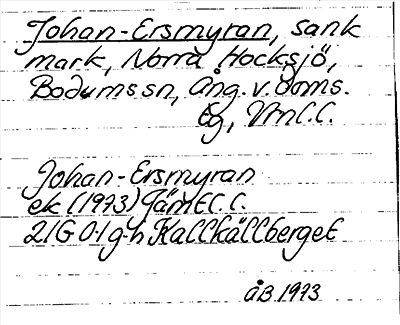 Johan-Ersmyran, sank
mark, Norra Hocksjö,
Bodums sn, Ång. v. Öms.
Eg, Vml.l.
Johan-Ersmyran
ek (1973) Jämtl.l.
21G 0-1 g-h Kallkällberget
åB 1973